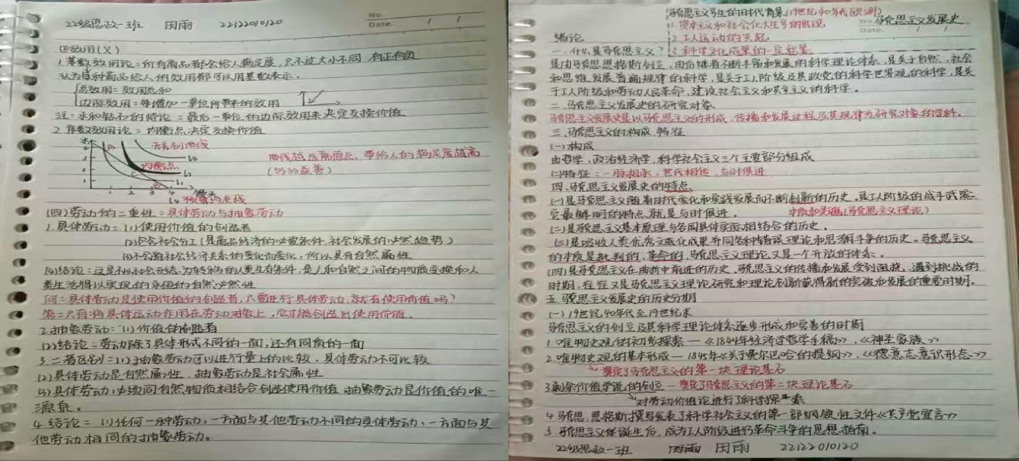 22级思政一班 田雨 22122010120
No.
Date.
(3)效用(X)
1.基数效用论=所有商品都会给人满足度,只不过大小不同 有正有负
认为每种商品给人的效用都可以用基数表示.
总效用=效用总和
边际效用=每增加一单位消费的效用
注:水和钻石的悖论=最后一单位的边际效用来决定交换价值
2.序数效用论=均衡点决定交换价值
无差别曲线
均衡点
曲线越远离原点,带给人的满足度越高
预算约束线
(四)劳动的二重性=具体劳动与抽象劳动
1.具体劳动=(1)使用价值的创造者
(2)包含社会分工(是商品经济的必要条件,社会发展的必然趋势)
(3)不会随社会经济关系的变化而变化,所以具有自然属性
问:具体劳动是使用价值的创造者,只要进行具体劳动,就有使用价值吗?
第二只有将具体运动作用在劳动对象上,它才能创造出使用价值.
2.抽象劳动=(1)价值的创造者
(2)结论=劳动除了具体形式不同的一面,还有同质的一面
3.二者区别=(1)抽象劳动可以进行量上的比较,具体劳动不可比较
(2)具体劳动是自然属性,抽象劳动是社会属性
(3)具体劳动必须同自然物质相结合创造使用价值,抽象劳动是价值的唯一
源泉.
4.结论=(1)任何一种劳动,一方面与其他劳动不同的具体劳动,一方面与其
他劳动相同的抽象劳动。
No.
Date.
马克思主义发展史
马克思主义产生的时代背景(19世纪40年代欧洲)
1.资本主义和社会化大生产的发现
绪论
2.工人运动的兴起
一.什么是马克思主义?
3.科学文化成果的一定积累
是由马克思恩格斯创立,由后继者不断丰富和发展的科学理论体系,是关于自然、社会
和思维发展普遍规律的科学,是关于工人阶级及其政党的科学世界观的科学,是关
于工人阶级和劳动人民革命,建设社会主义和共产主义的科学.
二.马克思主义发展史的研究对象
马克思主义发展史是以马克思主义的形成、传播和发展过程及其规律为研究对象的学科.
三.马克思主义的构成、特征
(一)构成
由哲学,政治经济学,科学社会主义三个主要部分组成
(二)特征:一脉相承,世代相传,与时俱进
四.马克思主义发展史的特点.
(一)是马克思主义随着时代变化和实践发展而不断创新的历史,是工人阶级的战斗武器.
它最鲜明的特点就是与时俱进.
(二)是马克思主义基本原理与各国具体实际相结合的历史.
(三)是吸收人类优秀文化成果并同各种错误理论和思潮斗争的历史.马克思主义
的本质是批判的、革命的,马克思主义理论又是一个开放的体系.
(四)是马克思主义在曲折中前进的历史,马克思主义的传播和发展受到困扰、遇到挑战的
时期,往往又是马克思主义理论研究和理论创新获得新的突破和发展的重要时期.
五.马克思主义发展史的历史分期
(一)19世纪40年代至19世纪末
马克思主义的创立及其科学理论体系逐步形成和完善的时期
1.唯物史观的初步探索—《1844年经济学哲学手稿》,《神圣家族》
2.唯物史观的基本形成—1845年《关于费尔巴哈的提纲》,《德意志意识形态》
奠定了马克思主义的第一块理论基石
3.剩余价值学说的创立—奠定了马克思主义的第二块理论基石
对劳动价值论进行了科学探索
4.马克思、恩格斯撰写发表了科学社会主义的第一部纲领性文件《共产党宣言》
5.马克思主义诞生后,成为工人阶级进行革命斗争的思想指南.
22级思政一班 田雨 22122010120